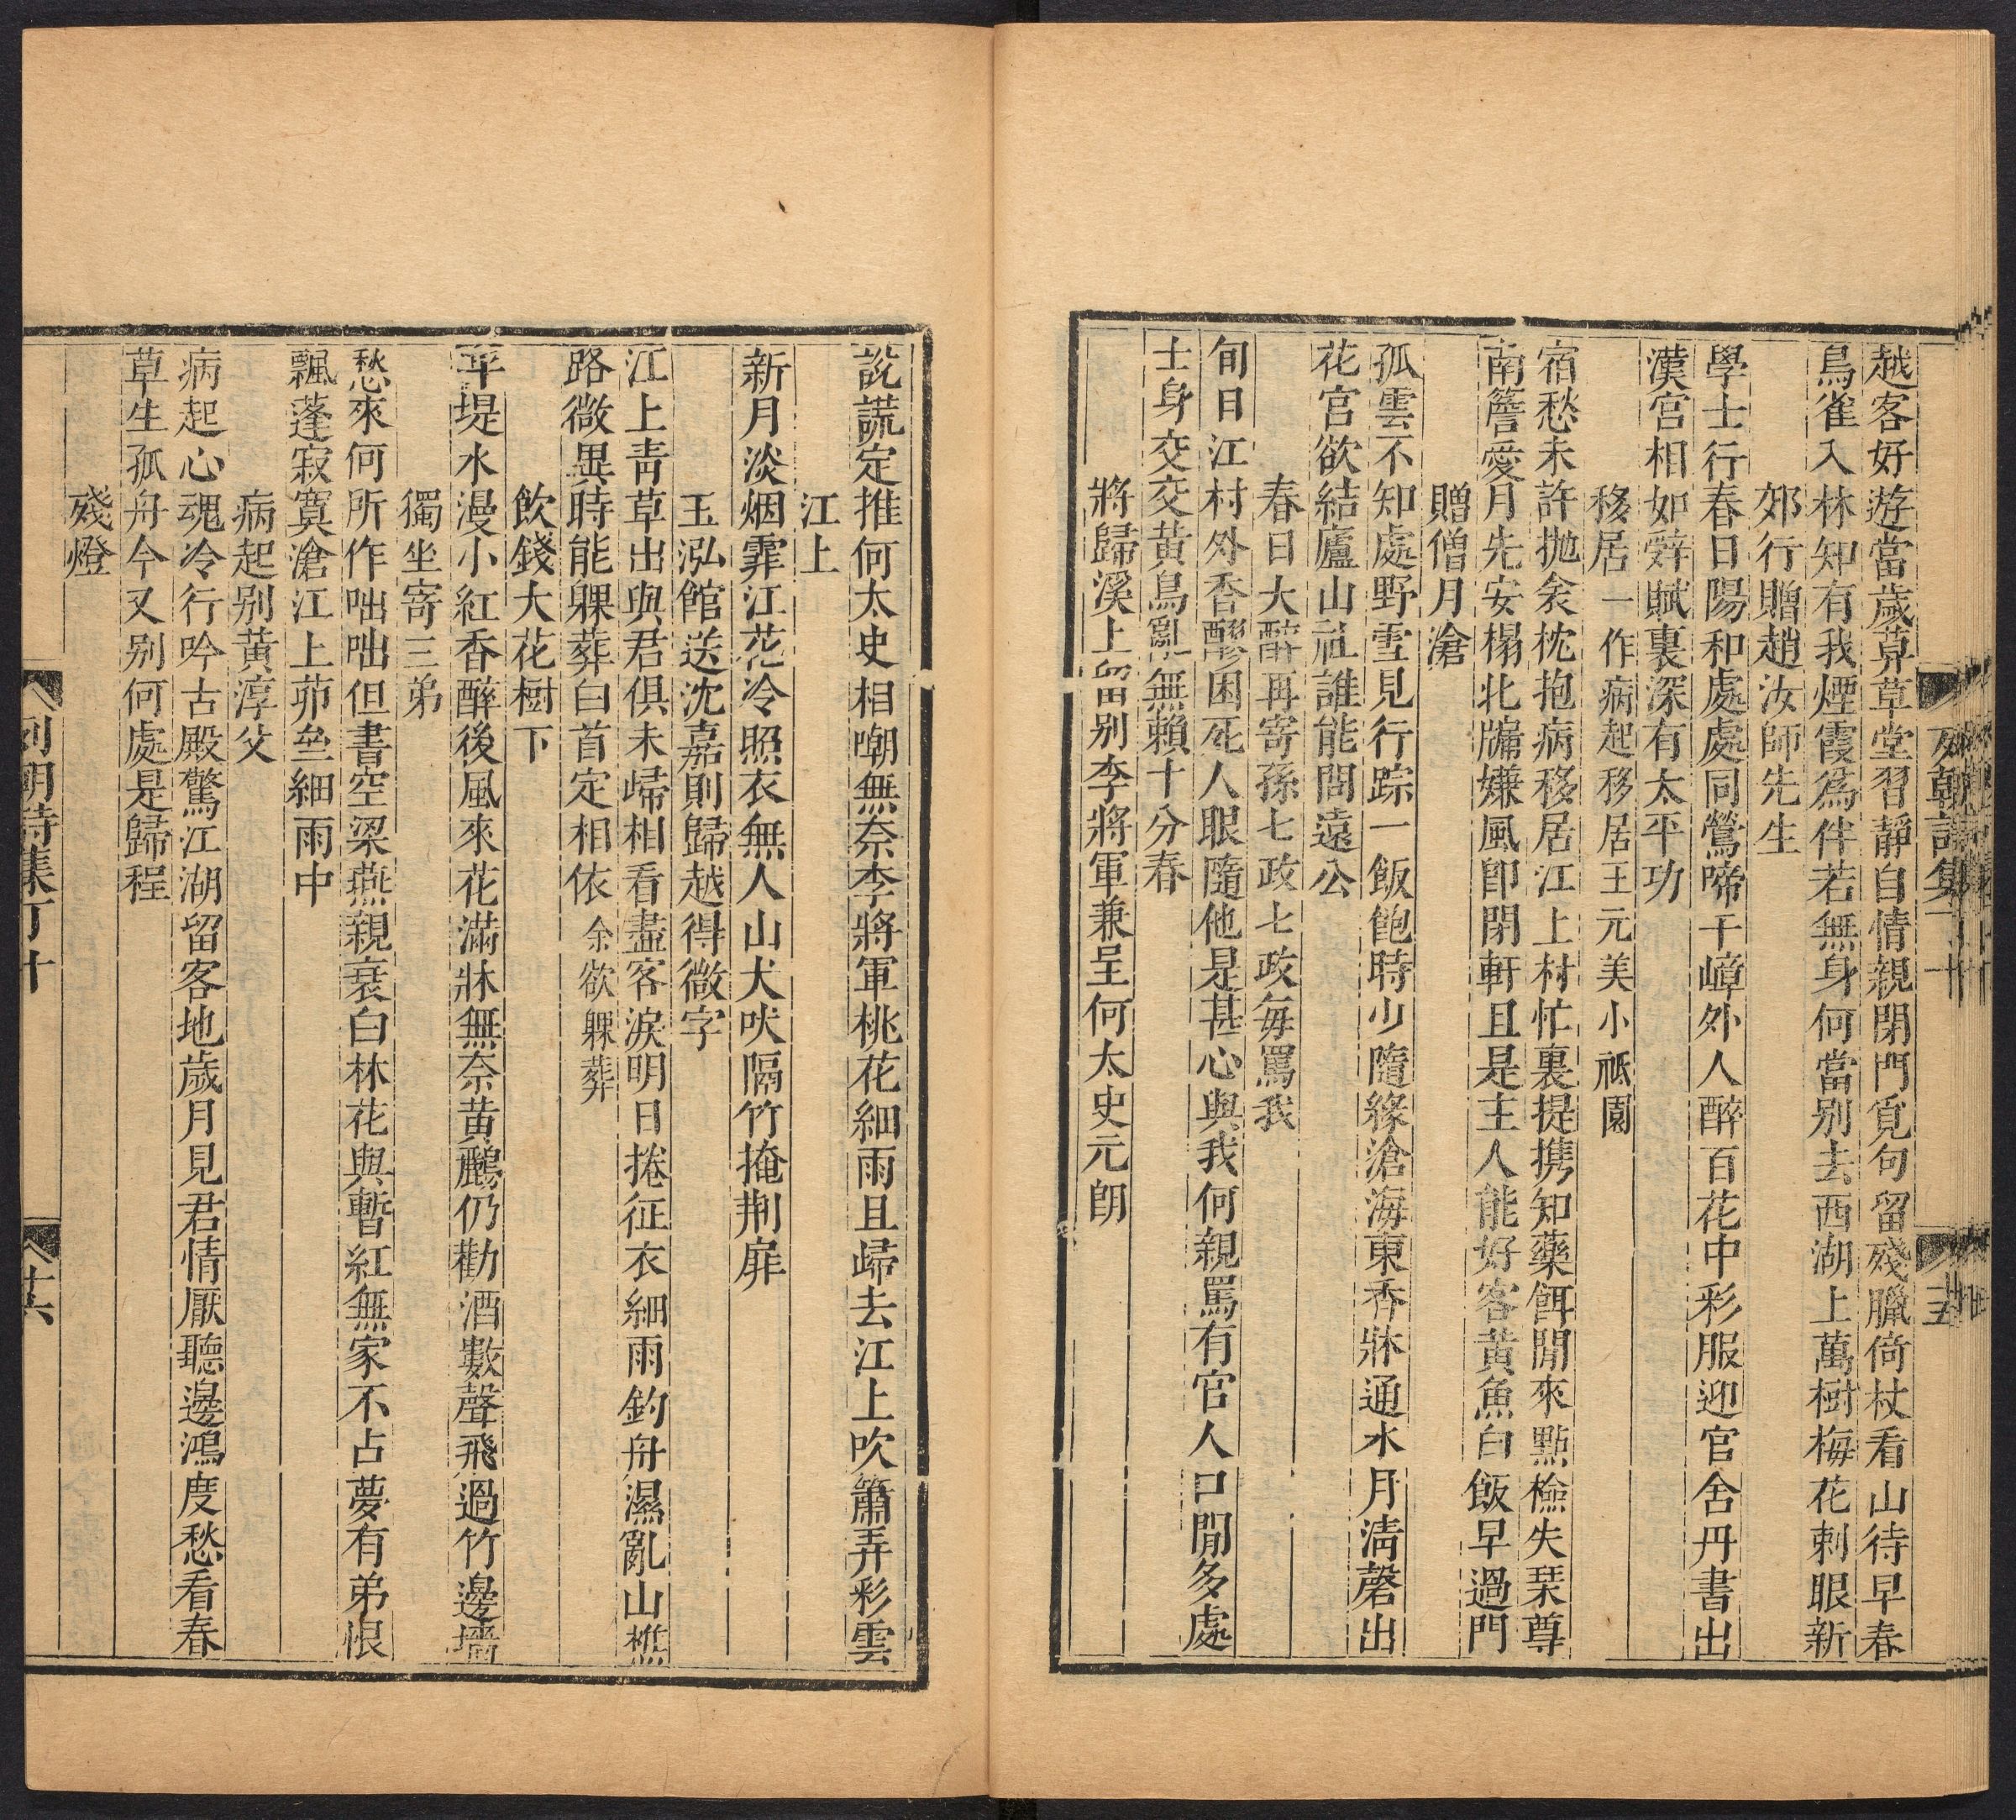 越客好遊當歲莫草堂習靜自情親閉門覓句留殘臘倚杖看山待早春
鳥雀入林知有我煙霞爲伴若無身何當别去西湖上萬樹梅花刺眼新
郊行贈趙汝師先生
學士行春日陽和處處同鶯啼千嶂外人醉百花中彩服迎官舍丹書出
漢宮相如辭賦裏深有太平功
移居一作病起移居王元美小祗園
宿愁未許抛衾枕抱病移居江上村忙裏提携知藥餌閒來點檢失琹尊
南簷愛月先安榻北牖嫌風卽閉軒且是主人能好客黄魚白飯早過門
贈僧月滄
孤雲不知處野雪見行踪一飯飽時少隨緣滄海東香牀通水月淸磬出
花宮欲結廬山社誰能問遠公
春日大醉再寄孫七政七政每罵我
旬日江村外香醪困死人眼隨他是甚心與我何親罵有官人口閒多處
士身交交黄鳥亂無賴十分春
將歸溪上留别李將軍兼呈何太史元朗
說謊定推何太史相嘲無奈李將軍桃花細雨且歸去江上吹簫弄彩雲
江上
新月淡烟霏江花冷照衣無人山犬吠隔竹掩荆扉
玉泓館送沈嘉則歸越得微字
江上靑草出與君俱未歸相看盡客淚明日捲征衣細雨釣舟濕亂山樵
路微異時能躶葬白首定相依余欲躶葬
飮錢大花樹下
平堤水漫小紅香醉後風來花滿牀無奈黄鸝仍勸酒數聲飛過竹邊墻
獨坐寄三弟
愁來何所作咄咄但書空梁燕親衰白林花與暫紅無家不占夢有弟恨
飄蓬寂寞滄江上茆堂細雨中
病起别黄淳父
病起心魂冷行吟古殿驚江湖留客地歲月見君情厭聽邊鴻度愁看春
草生孤舟今又别何處是歸程
殘燈
列朝詩集丁十
卄六